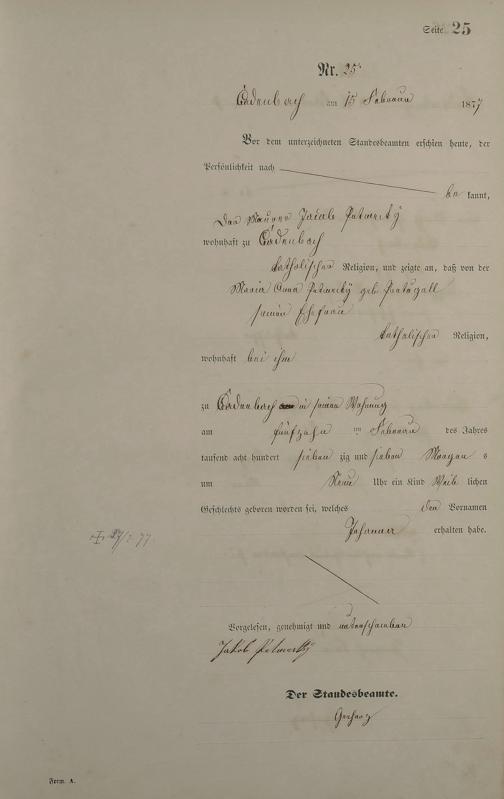 Seite 25
Nr. 25
Cadenbach am 15 Februar 1877
Vor dem unterzeichneten Standesbeamten erschien heute, der
Persönlichkeit nach
be kannt,
Der Maurer Jacob
wohnhaft zu Cadenbach
katholischer Religion, und zeigte an, daß von der
Maria Anna geb.
seiner Ehefrau
katholischer Religion,
wohnhaft bei ihm
zu Cadenbach in seiner Wohnung
am fünfzehn ten Februar des Jahres
tausend acht hundert sieben zig und sieben Morgen s
um Neun Uhr ein Kind Weib lichen
Geschlechts geboren worden sei, welches den Vornamen
erhalten habe.
Vorgelesen, genehmigt und unterschrieben
Jakob
Der Standesbeamte.
Form. A.